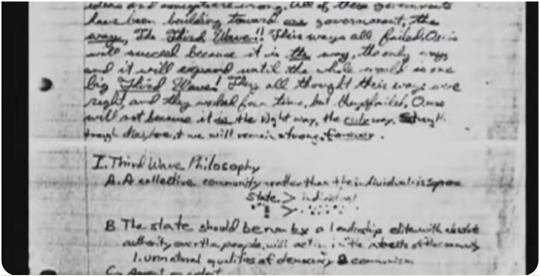 ideas and were wrong. All of these governments
have been building toward one government, the
way, The Third Wave!! Their ways all failed, Ours
will succeed because it is the way, the only way
and it will expand until the whole world is one
big Third Wave! They all thought their ways were
right, and they worked for a time, but they failed, Ours
will not because it is the right way, the only way. Strength
through discipline, & we will remain strong, forever.
I. Third Wave Philosophy
A. A collective community rather than the individual is
State > individual
>
B. The state should be run by a leadership elite with absolute
authority over the people, will act in the interests of the
1. unnatural qualities of democracy & communism